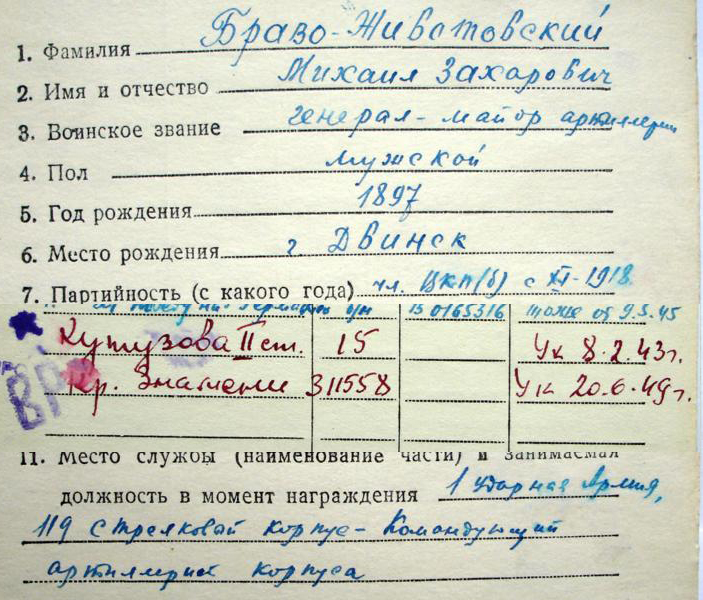 1. Фамилия Браво-Животовский
2. Имя и отчество Михаил Захарович
3. Воинское звание генерал-майор артиллерии
4. Пол мужской
5. Год рождения 1897
6. Место рождения г. Двинск
7. Партийность (с какого года) чл. ВКП(б) с XI-1918.
победу н. Германией б/н В 0165316 тоже от 9.5.45
Кутузова II ст. 15 Ук 8.2.43г.
Кр. Знамени 311558 Ук 20.6.49г.
ВР
11. Место службы (наименование части) и занимаемая
должность в момент награждения 1 ударная Армия,
119 стрелковый корпус - Командующий
артиллерией корпуса